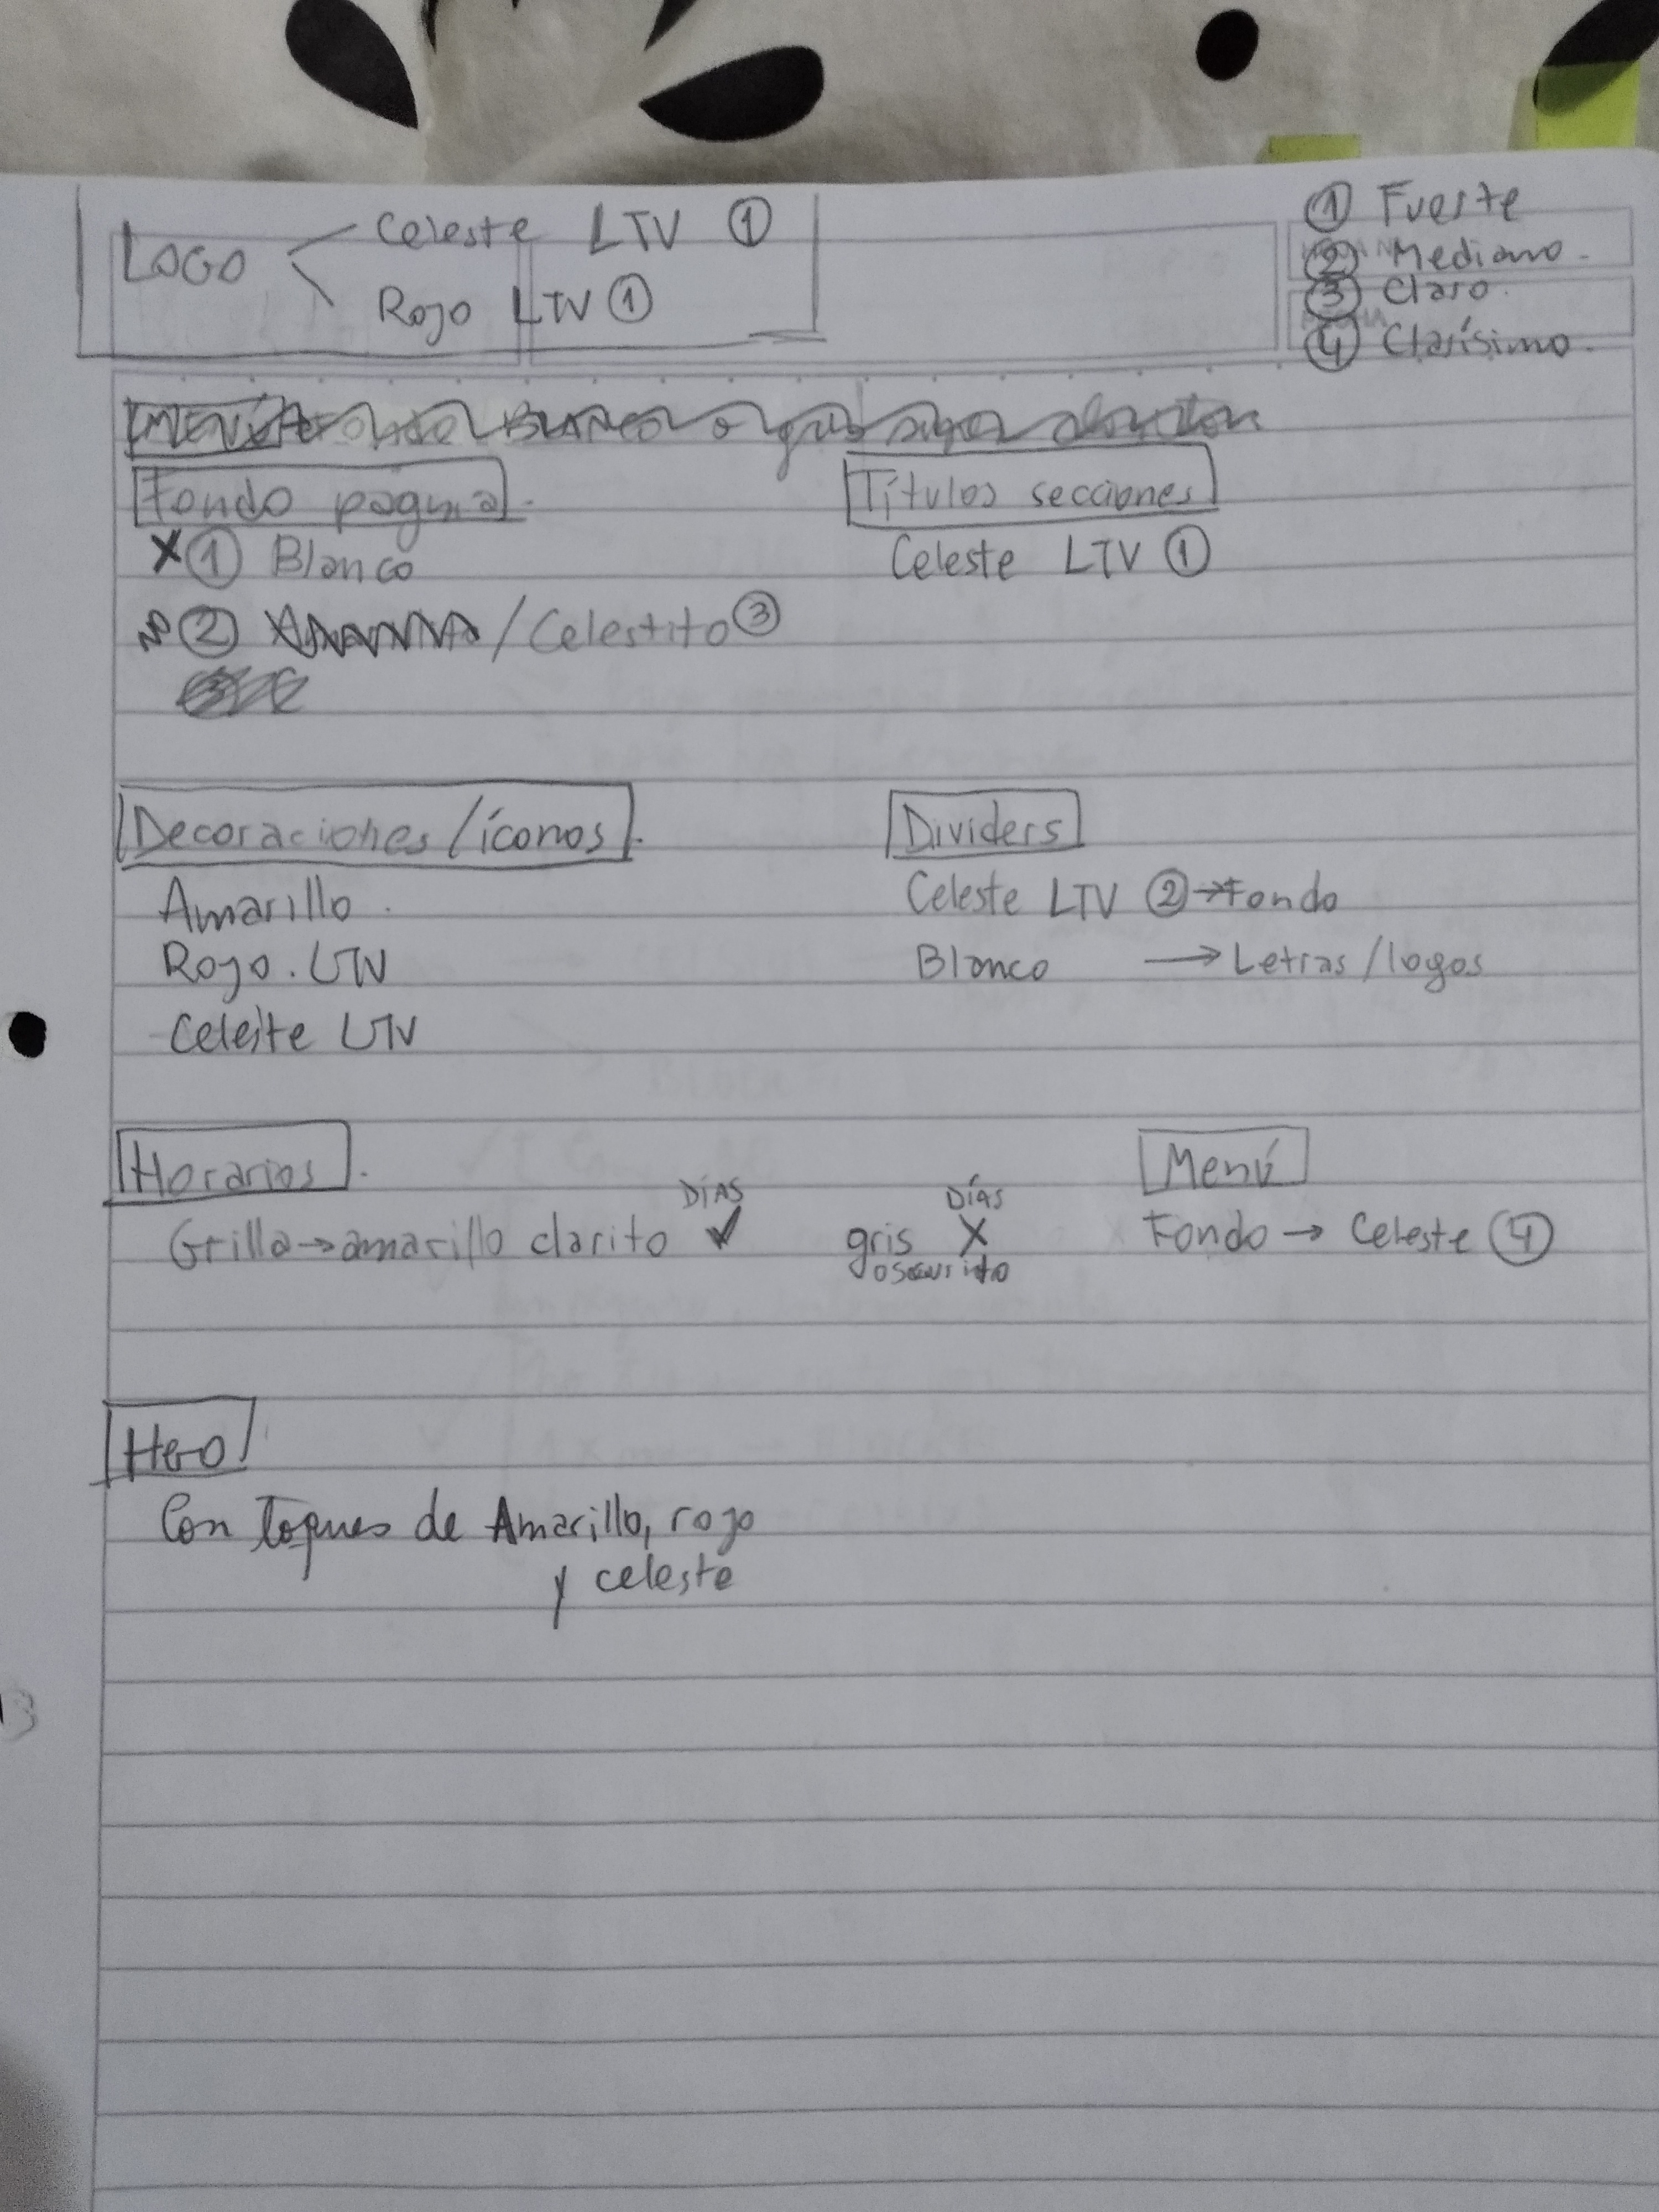 LOGO
Celeste LTV ①
Rojo LTV ①
① Fuerte
② Mediano.
③ Claro.
④ Clarísimo.
Fondo pagina.
X ① Blanco
② /Celestito ③
Títulos secciones
Celeste LTV ①
Decoraciones/íconos.
Amarillo.
Rojo. LTV
Celeste LTV
Dividers
Celeste LTV ② → Fondo
Blanco → Letras/logos
Horarios.
DÍAS
Grilla → amarillo clarito ✓
DÍAS
gris X
oscurito
Menú
Fondo → Celeste ④
Hero
Con toques de Amarillo, rojo
y celeste